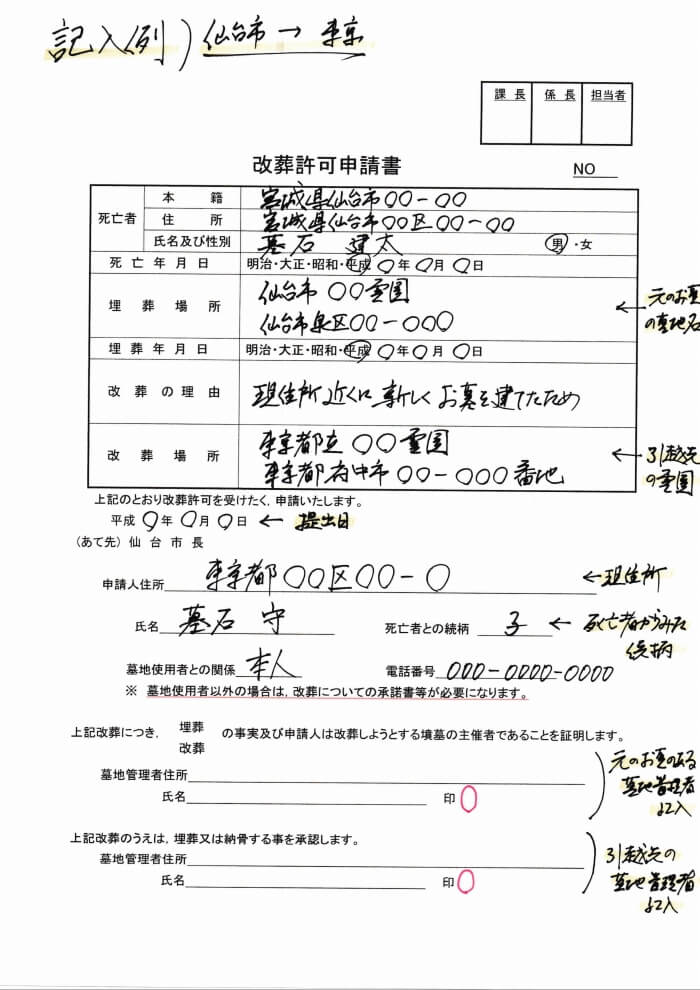 記入例) 仙台市 → 東京
課長 係長 担当者
改葬許可申請書
NO
死亡者 本籍 宮城県仙台市〇〇-〇〇
住所 宮城県仙台市〇〇区〇〇-〇〇
氏名及び性別 墓石 建太 男・女
死亡年月日 明治・大正・昭和・平成 〇年〇月〇日
埋葬場所 仙台市 〇〇霊園
仙台市泉区〇〇-〇〇〇
← 元のお墓
の墓地名
埋葬年月日 明治・大正・昭和・平成 〇年〇月〇日
改葬の理由 現住所近くに新しくお墓を建てたため
改葬場所 東京都立 〇〇霊園
東京都府中市〇〇-〇〇〇番地
← 引越先
の霊園
上記のとおり改葬許可を受けたく,申請いたします。
平成 〇年〇月〇日 ← 提出日
(あて先)仙台市長
申請人住所 東京都〇〇区〇〇-〇 ← 現住所
氏名 墓石 守 死亡者との続柄 子 ← 死亡者からみた
続柄
墓地使用者との関係 本人 電話番号 000-0000-0000
※ 墓地使用者以外の場合は,改葬についての承諾書等が必要になります。
上記改葬につき, 埋葬 改葬 の事実及び申請人は改葬しようとする墳墓の主催者であることを証明します。
墓地管理者住所
氏名 印
元のお墓のある
墓地管理者
記入
上記改葬のうえは,埋葬又は納骨する事を承認します。
墓地管理者住所
氏名 印
引越先の
墓地管理者
記入